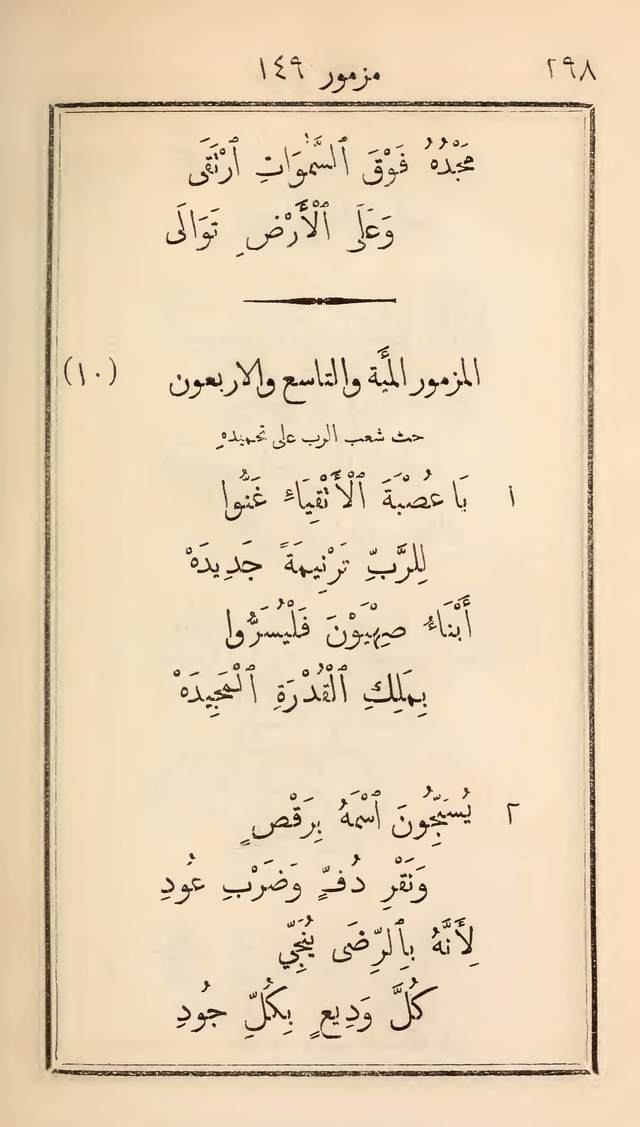 ٢٩٨ مزمور ١٤٩
مَجْدُهُ فَوْقَ ٱلسَّمٰوَاتِ ٱرْتَقَى
وَعَلَى ٱلْأَرْضِ تَوَالَى
المزمور المئَة والتاسع والاربعون (١٠)
حث شعب الرب على تحميدهِ
١ يَا عُصْبَةَ ٱلْأَتْقِيَاءِ غَنُّوا
لِلرَّبِّ تَرْنِيمَةً جَدِيدَهْ
أَبْنَاءُ صِهْيَوْنَ فَلْيُسَرُّوا
بِمَلِكِ ٱلْقُدْرَةِ ٱلْمَجِيدَهْ
٢ يُسَبِّحُونَ ٱسْمَهُ بِرَقْصٍ
وَنَقْرِ دُفٍّ وَضَرْبِ عُودِ
لِأَنَّهُ بِٱلرِّضَى يُنَجِّي
كُلَّ وَدِيعٍ بِكُلِّ جُودِ